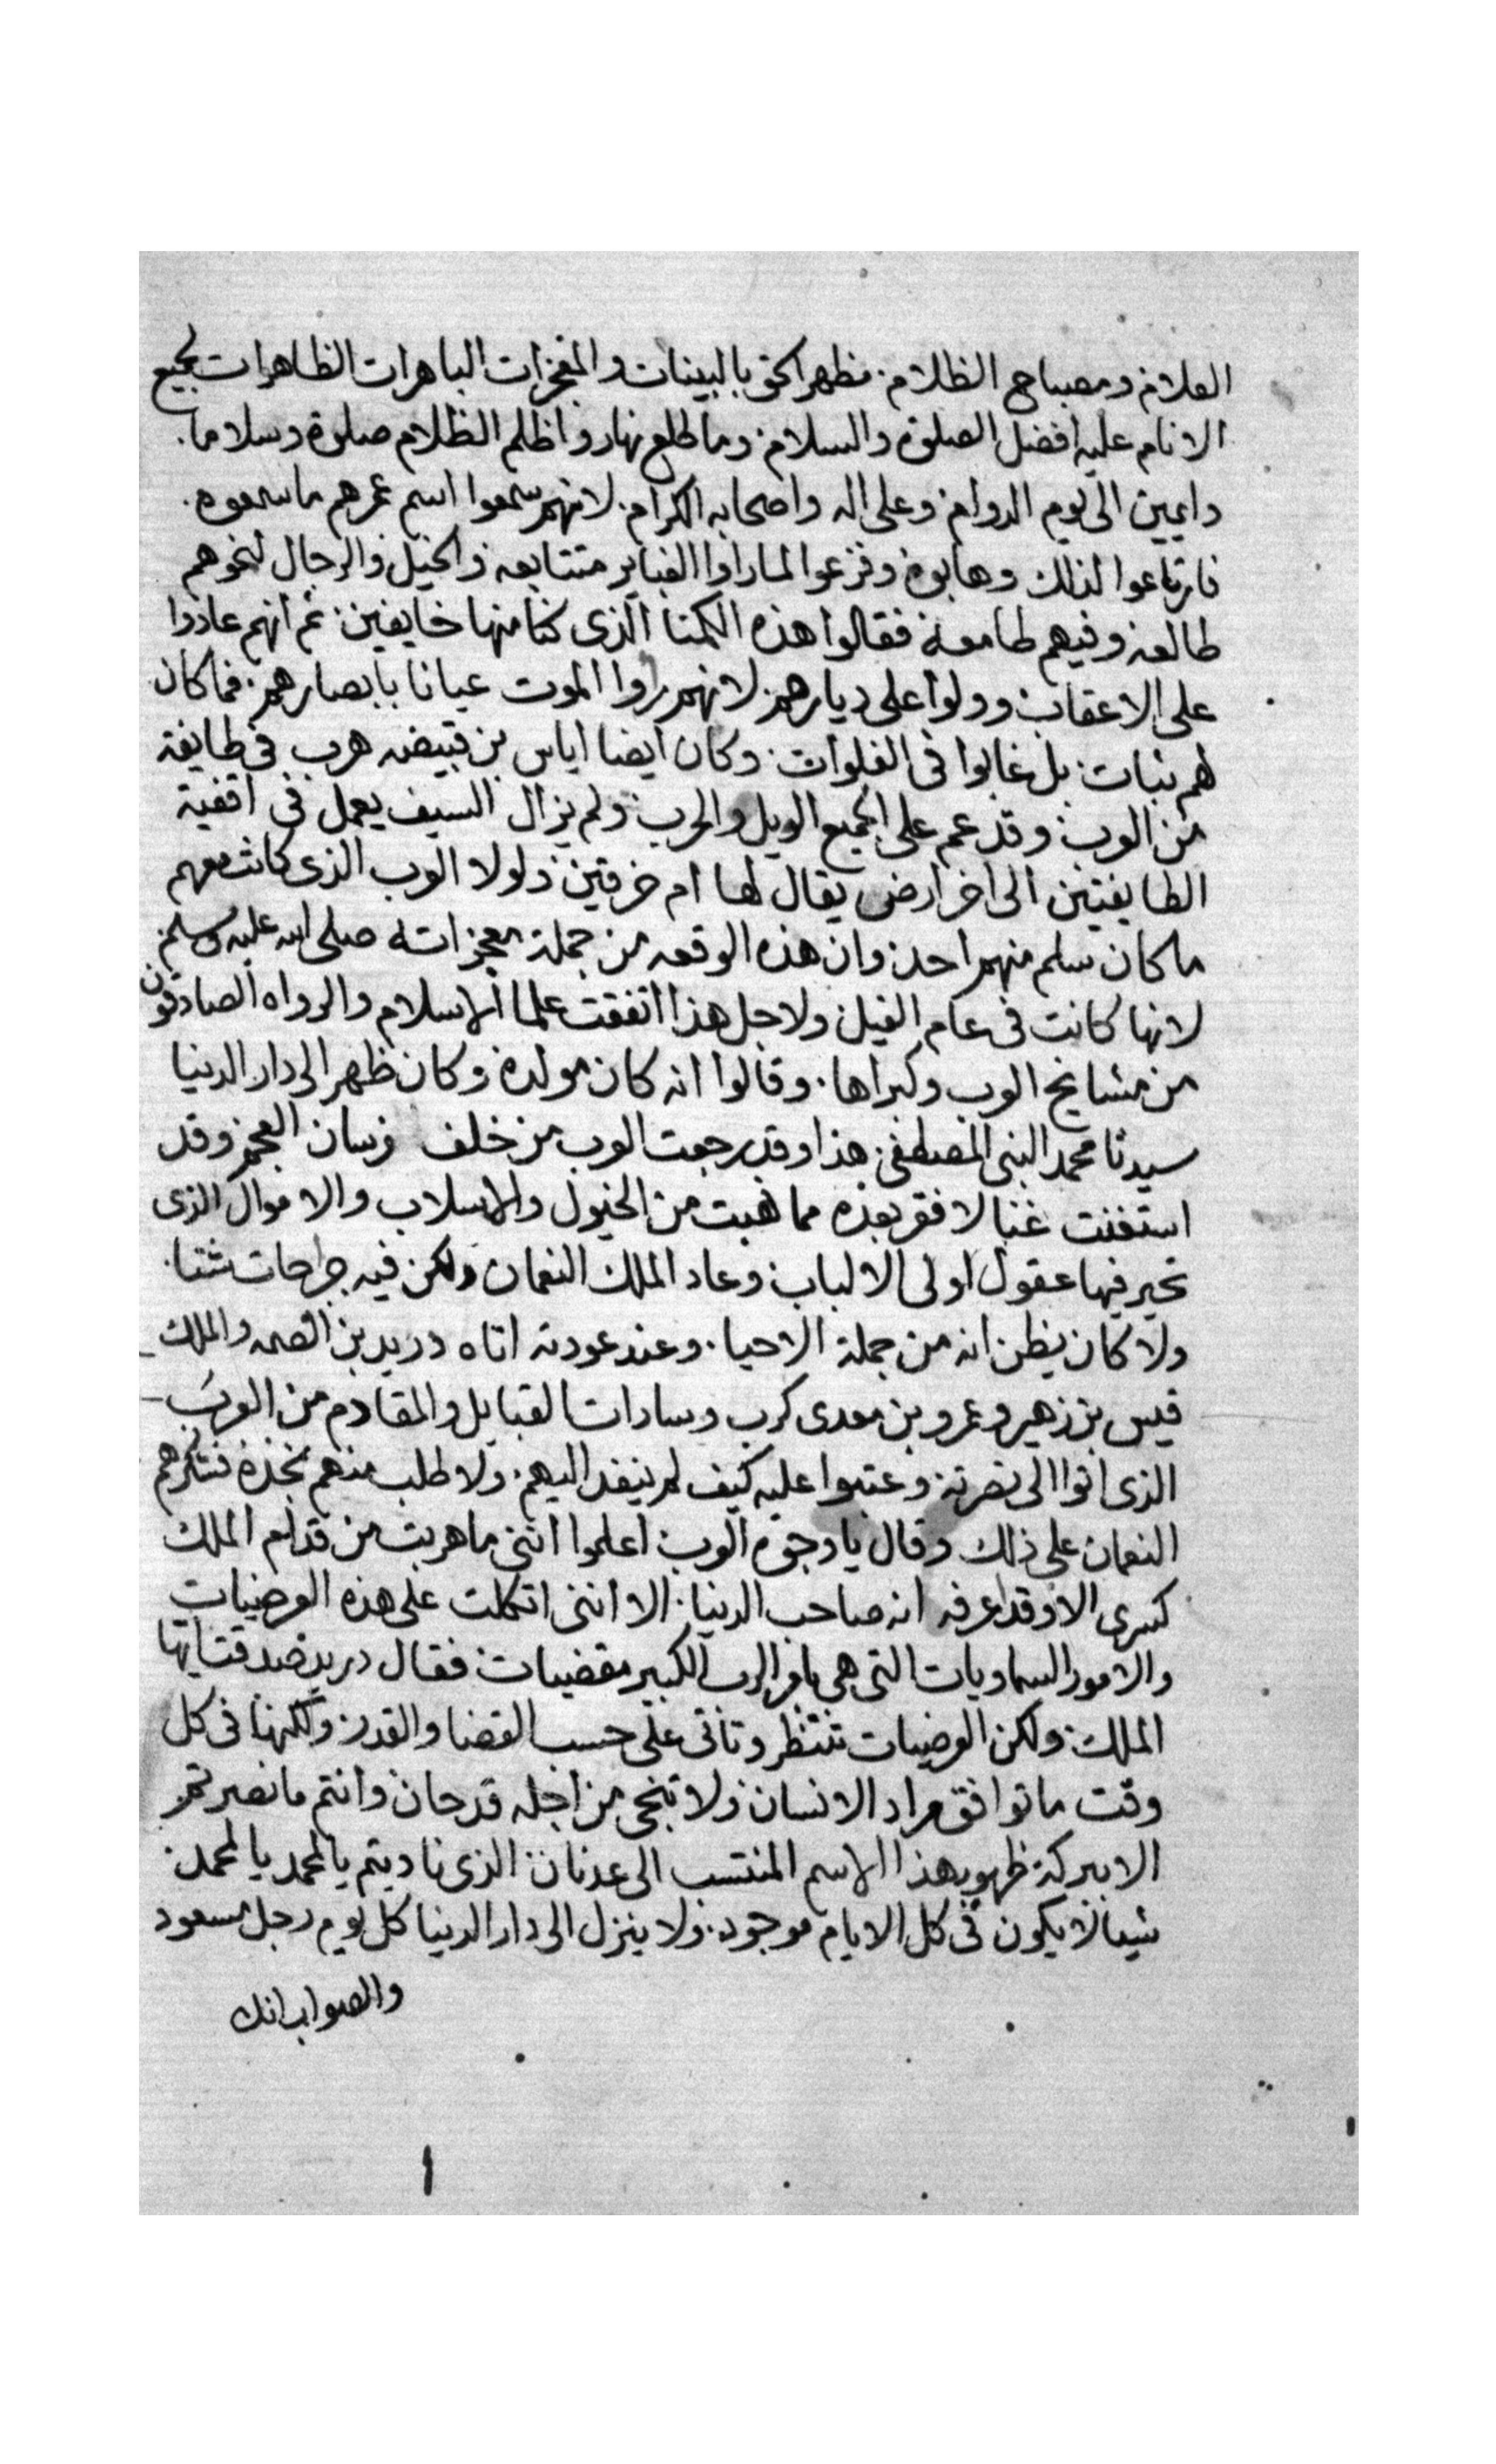 العلام ومصباح الظلام. مظهر الحق بالبينات والمعجزات الباهرات الظاهرات لجميع
الانام عليه افضل الصلوة والسلام. وما طلع نهار واظلم الظلام صلوة وسلاما.
دايمين الى يوم الدوام. وعلى اله واصحابه الكرام. لانهم سمعوا اسم عمرهم ما سمعوه.
فارتاعوا لذلك وهابوه وفزعوا لما راوا الغباير متتابعه. والخيل والرجال لنحوهم
طالعه. وفيهم طامعة فقالوا هذه الكمنا الذى كنا منها خايفين. ثم انهم عادوا
على الاعقاب. وولوا على ديارهم. لانهم راوا الموت عيانا بابصارهم. فما كان
لهم ثبات. بل غابوا فى الفلوات. وكان ايضا اياس بن قبيضه هرب فى طايفة
من العرب. وقد عم على الجميع الويل والحرب. ولم يزال السيف يعمل فى اقفية
الطايفتين الى اخر ارض يقال لها ام خرقين. ولولا العرب الذى كانت معهم
ما كان سلم منهم احد. وان هذه الوقعه من جملة معجزاته صلى الله عليه وسلم.
لانها كانت فى عام الفيل. ولاجل هذا اتفقت علما الاسلام والرواه الصادقون
من مشايخ العرب وكبراها. وقالوا انه كان مولده وكان ظهر الى دار الدنيا
سيدنا محمد النبى المصطفى. هذا وقد رجعت العرب من خلف فرسان العجم. وقد
استغنت غنا لا فقر بعده مما نهبت من الخيول والاسلاب والاموال الذى
تحير فيها عقول اولى الالباب. وعاد الملك النعمان ولكن فيه جراحات شتا.
ولا كان يظن انه من جملة الاحيا. وعند عودته اتاه دريد بن الصمه والملك
قيس بن زهير وعمرو بن معدى كرب وسادات القبايل والمقادم من العرب
الذى اتوا الى نصرته. وعتبوا عليه كيف لم ينفد اليهم. ولا طلب منهم نجده فشكرهم
النعمان على ذلك وقال يا وجوه العرب اعلموا اننى ما هربت من قدام الملك
كسرى الا وقد اعرفه انه صاحب الدنيا. الا اننى اتكلت على هذه العرضيات
والامور السماويات التى هى بامر الرب الكبير مقضيات. فقال دريد صدقت ايها
الملك. ولكن العرضيات تنتظر وتاتى على حسب القضا والقدر. ولكنها فى كل
وقت ما توافق مراد الانسان. ولا تنجى من اجله قد حان. وانتم ما نصرتم
الا ببركة ظهور هذا الاسم المنتسب الى عدنان. الذى ناديتم يالمحمد يالمحمد.
شيا لا يكون فى كل الايام موجود. ولا ينزل الى دار الدنيا كل يوم رجل مسعود
والصواب انك